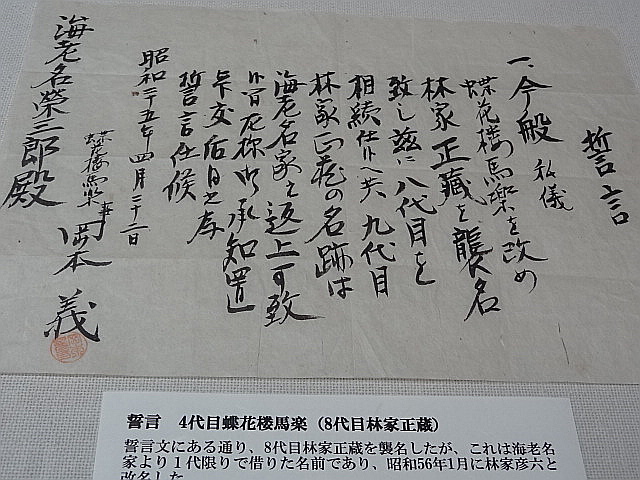 誓言
一、今般 私儀
蝶花楼馬楽を改め
林家正蔵を襲名
致し茲に八代目を
相続仕候へ共九代目
林家正蔵の名跡は
海老名家え返上可致
御承知置
誓言仕候
昭和二十五年四月二十二日
蝶花楼馬楽事
岡本 義
海老名栄三郎殿
誓言 4代目蝶花楼馬楽（8代目林家正蔵）
誓言文にある通り、8代目林家正蔵を襲名したが、これは海老名
家より1代限りで借りた名前であり、昭和56年1月に林家彦六と
改名した